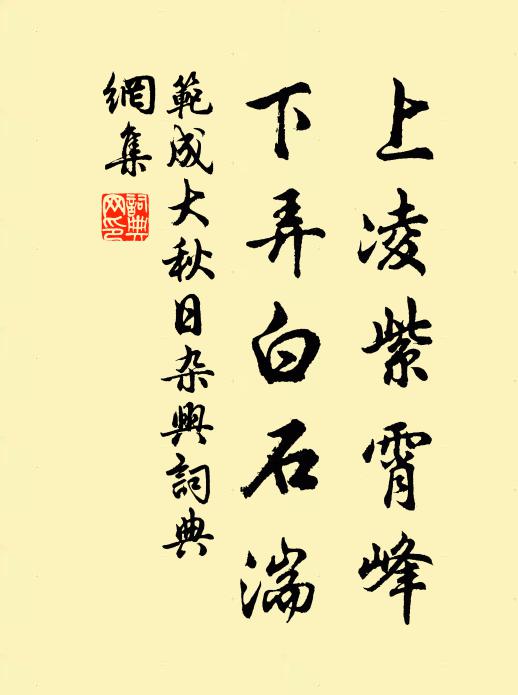 上凌紫霄峰
下弄白石湍
範成大秋日杂興詞典
網集
詞典
网印